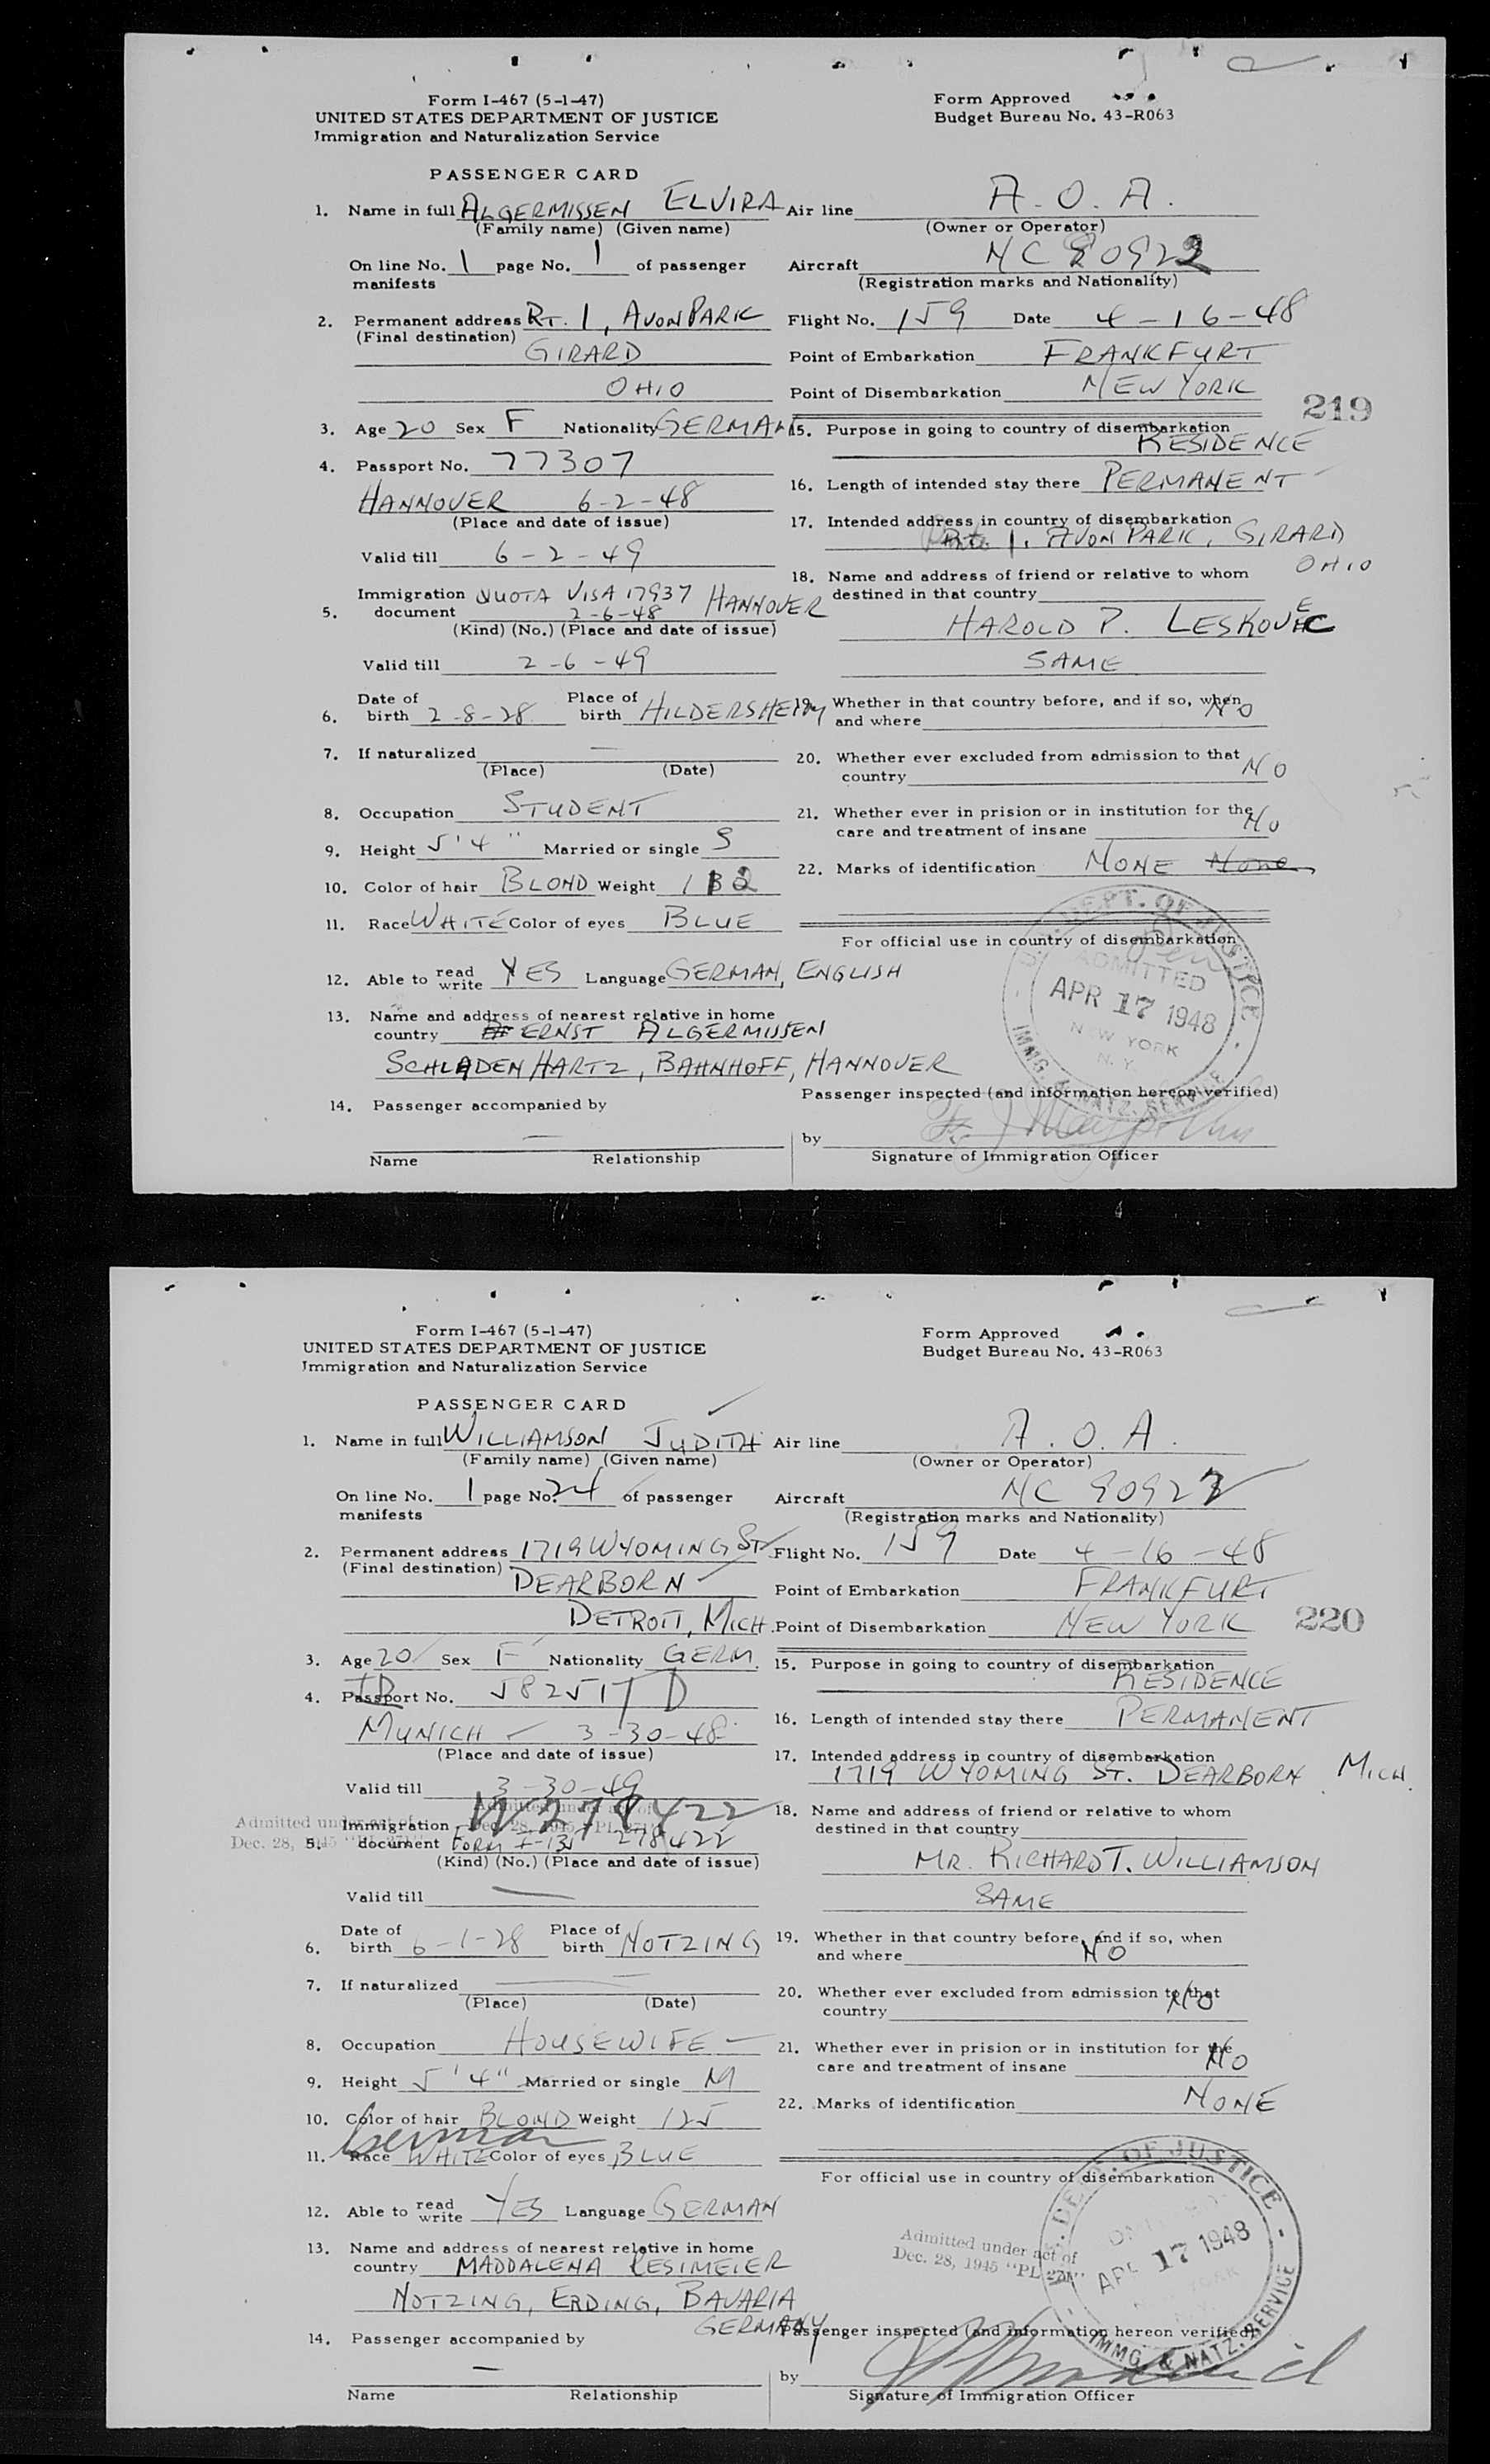 Form I-467 (5-1-47)
UNITED STATES DEPARTMENT OF JUSTICE
Immigration and Naturalization Service
Form Approved
Budget Bureau No. 43-R063
PASSENGER CARD
1. Name in full ALGERMISSEN ELVIRA
(Family name) (Given name)
On line No. 1 page No. 1 of passenger
manifests
2. Permanent address RT. 1, AVON PARK
(Final destination)
GIRARD
OHIO
3. Age 20 Sex F Nationality GERMAN
4. Passport No. 77307
HANNOVER 6-2-48
(Place and date of issue)
Valid till 6-2-49
Immigration QUOTA VISA 17937 HANNOVER
5. document 2-6-48
(Kind) (No.) (Place and date of issue)
Valid till 2-6-49
Date of Place of
6. birth 2-8-28 birth HILDERSHEIM
7. If naturalized —
(Place) (Date)
8. Occupation STUDENT
9. Height 5'4" Married or single S
10. Color of hair BLOND Weight 132
11. Race WHITE Color of eyes BLUE
12. Able to read write YES Language GERMAN, ENGLISH
13. Name and address of nearest relative in home
country ERNST ALGERMISSEN
SCHLADEN HARTZ, BAHNHOFF, HANNOVER
14. Passenger accompanied by
—
Name Relationship
Air line A.O.A.
(Owner or Operator)
Aircraft NC 90922
(Registration marks and Nationality)
Flight No. 159 Date 4-16-48
Point of Embarkation FRANKFURT
Point of Disembarkation NEW YORK
219
15. Purpose in going to country of disembarkation
RESIDENCE
16. Length of intended stay there PERMANENT
17. Intended address in country of disembarkation
Rt. 1, AVON PARK, GIRARD
OHIO
18. Name and address of friend or relative to whom
destined in that country
HAROLD P. LESKOVEC
SAME
19. Whether in that country before, and if so, when
and where NO
20. Whether ever excluded from admission to that
country NO
21. Whether ever in prision or in institution for the
care and treatment of insane NO
22. Marks of identification NONE None
For official use in country of disembarkation
U.S. DEPT. OF JUSTICE
ADMITTED
APR 17 1948
NEW YORK
N.Y.
IMMG. & NATZ. SERVICE
Passenger inspected (and information hereon verified)
by
Signature of Immigration Officer
Form I-467 (5-1-47)
UNITED STATES DEPARTMENT OF JUSTICE
Immigration and Naturalization Service
Form Approved
Budget Bureau No. 43-R063
PASSENGER CARD
1. Name in full WILLIAMSON JUDITH
(Family name) (Given name)
On line No. 1 page No. 24 of passenger
manifests
2. Permanent address 1719 WYOMING ST.
(Final destination)
DEARBORN
DETROIT, MICH.
3. Age 20 Sex F Nationality GERM.
4. Passport No. 58251 TD
MUNICH - 3-30-48
(Place and date of issue)
Valid till 3-30-49
W 278422
Admitted under act of
Dec. 28, 1945 "PL 271"
Immigration
5. document FORM I-131 278422
(Kind) (No.) (Place and date of issue)
Valid till —
Date of Place of
6. birth 6-1-28 birth NOTZING
7. If naturalized —
(Place) (Date)
8. Occupation HOUSEWIFE
9. Height 5'4" Married or single M
10. Color of hair BLOND Weight 125
German
11. Race WHITE Color of eyes BLUE
12. Able to read write YES Language GERMAN
13. Name and address of nearest relative in home
country MADDALENA RESIMEIER
NOTZING, ERDING, BAVARIA
GERMANY
14. Passenger accompanied by
—
Name Relationship
Air line A.O.A.
(Owner or Operator)
Aircraft NC 90922
(Registration marks and Nationality)
Flight No. 159 Date 4-16-48
Point of Embarkation FRANKFURT
Point of Disembarkation NEW YORK
220
15. Purpose in going to country of disembarkation
RESIDENCE
16. Length of intended stay there PERMANENT
17. Intended address in country of disembarkation
1719 WYOMING ST. DEARBORN MICH.
18. Name and address of friend or relative to whom
destined in that country
MR. RICHARD T. WILLIAMSON
SAME
19. Whether in that country before, and if so, when
and where NO
20. Whether ever excluded from admission to that
country NO
21. Whether ever in prision or in institution for the
care and treatment of insane NO
22. Marks of identification NONE
For official use in country of disembarkation
Admitted under act of
Dec. 28, 1945 "PL 271"
DEPT. OF JUSTICE
APR 17 1948
IMMG. & NATZ. SERVICE
Passenger inspected (and information hereon verified)
by
Signature of Immigration Officer